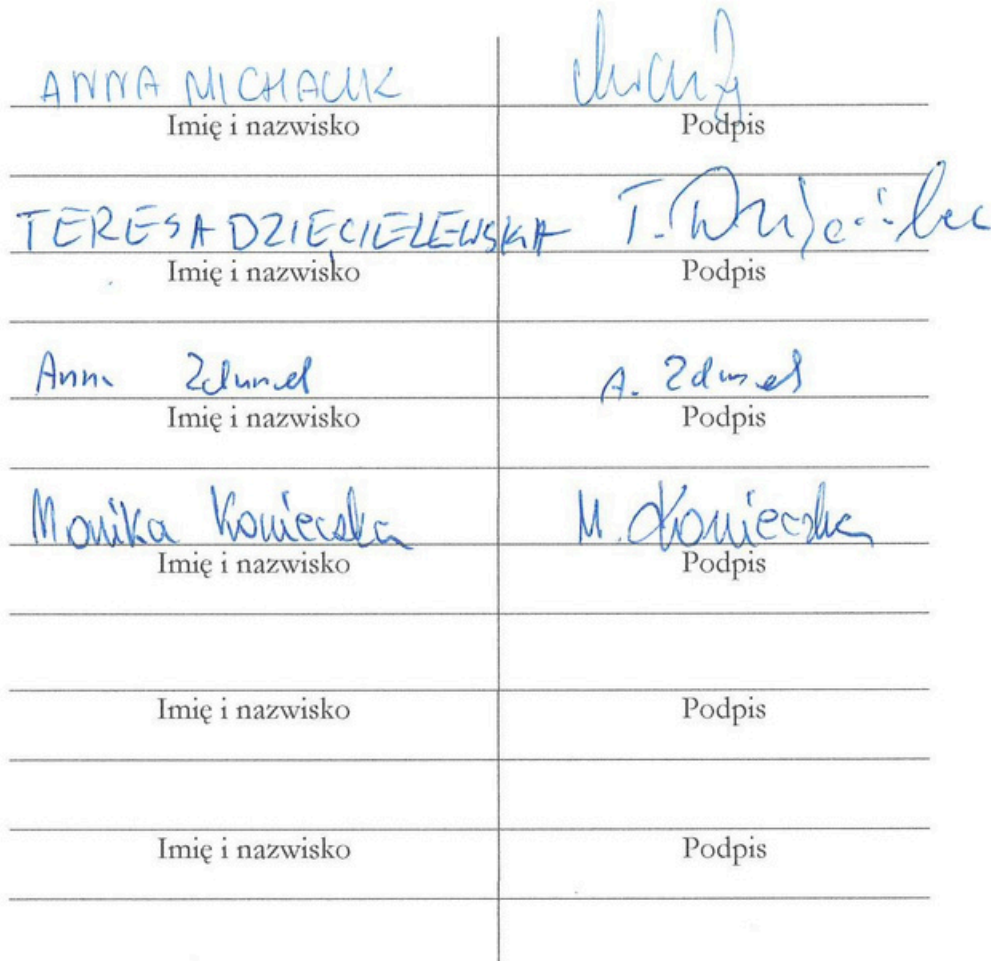 ANNA MICHALIK
Imię i nazwisko Podpis
TERESA DZIĘCIELEWSKA T.
Imię i nazwisko Podpis
Anna A.
Imię i nazwisko Podpis
Monika Konieczka M. Konieczka
Imię i nazwisko Podpis
Imię i nazwisko Podpis
Imię i nazwisko Podpis